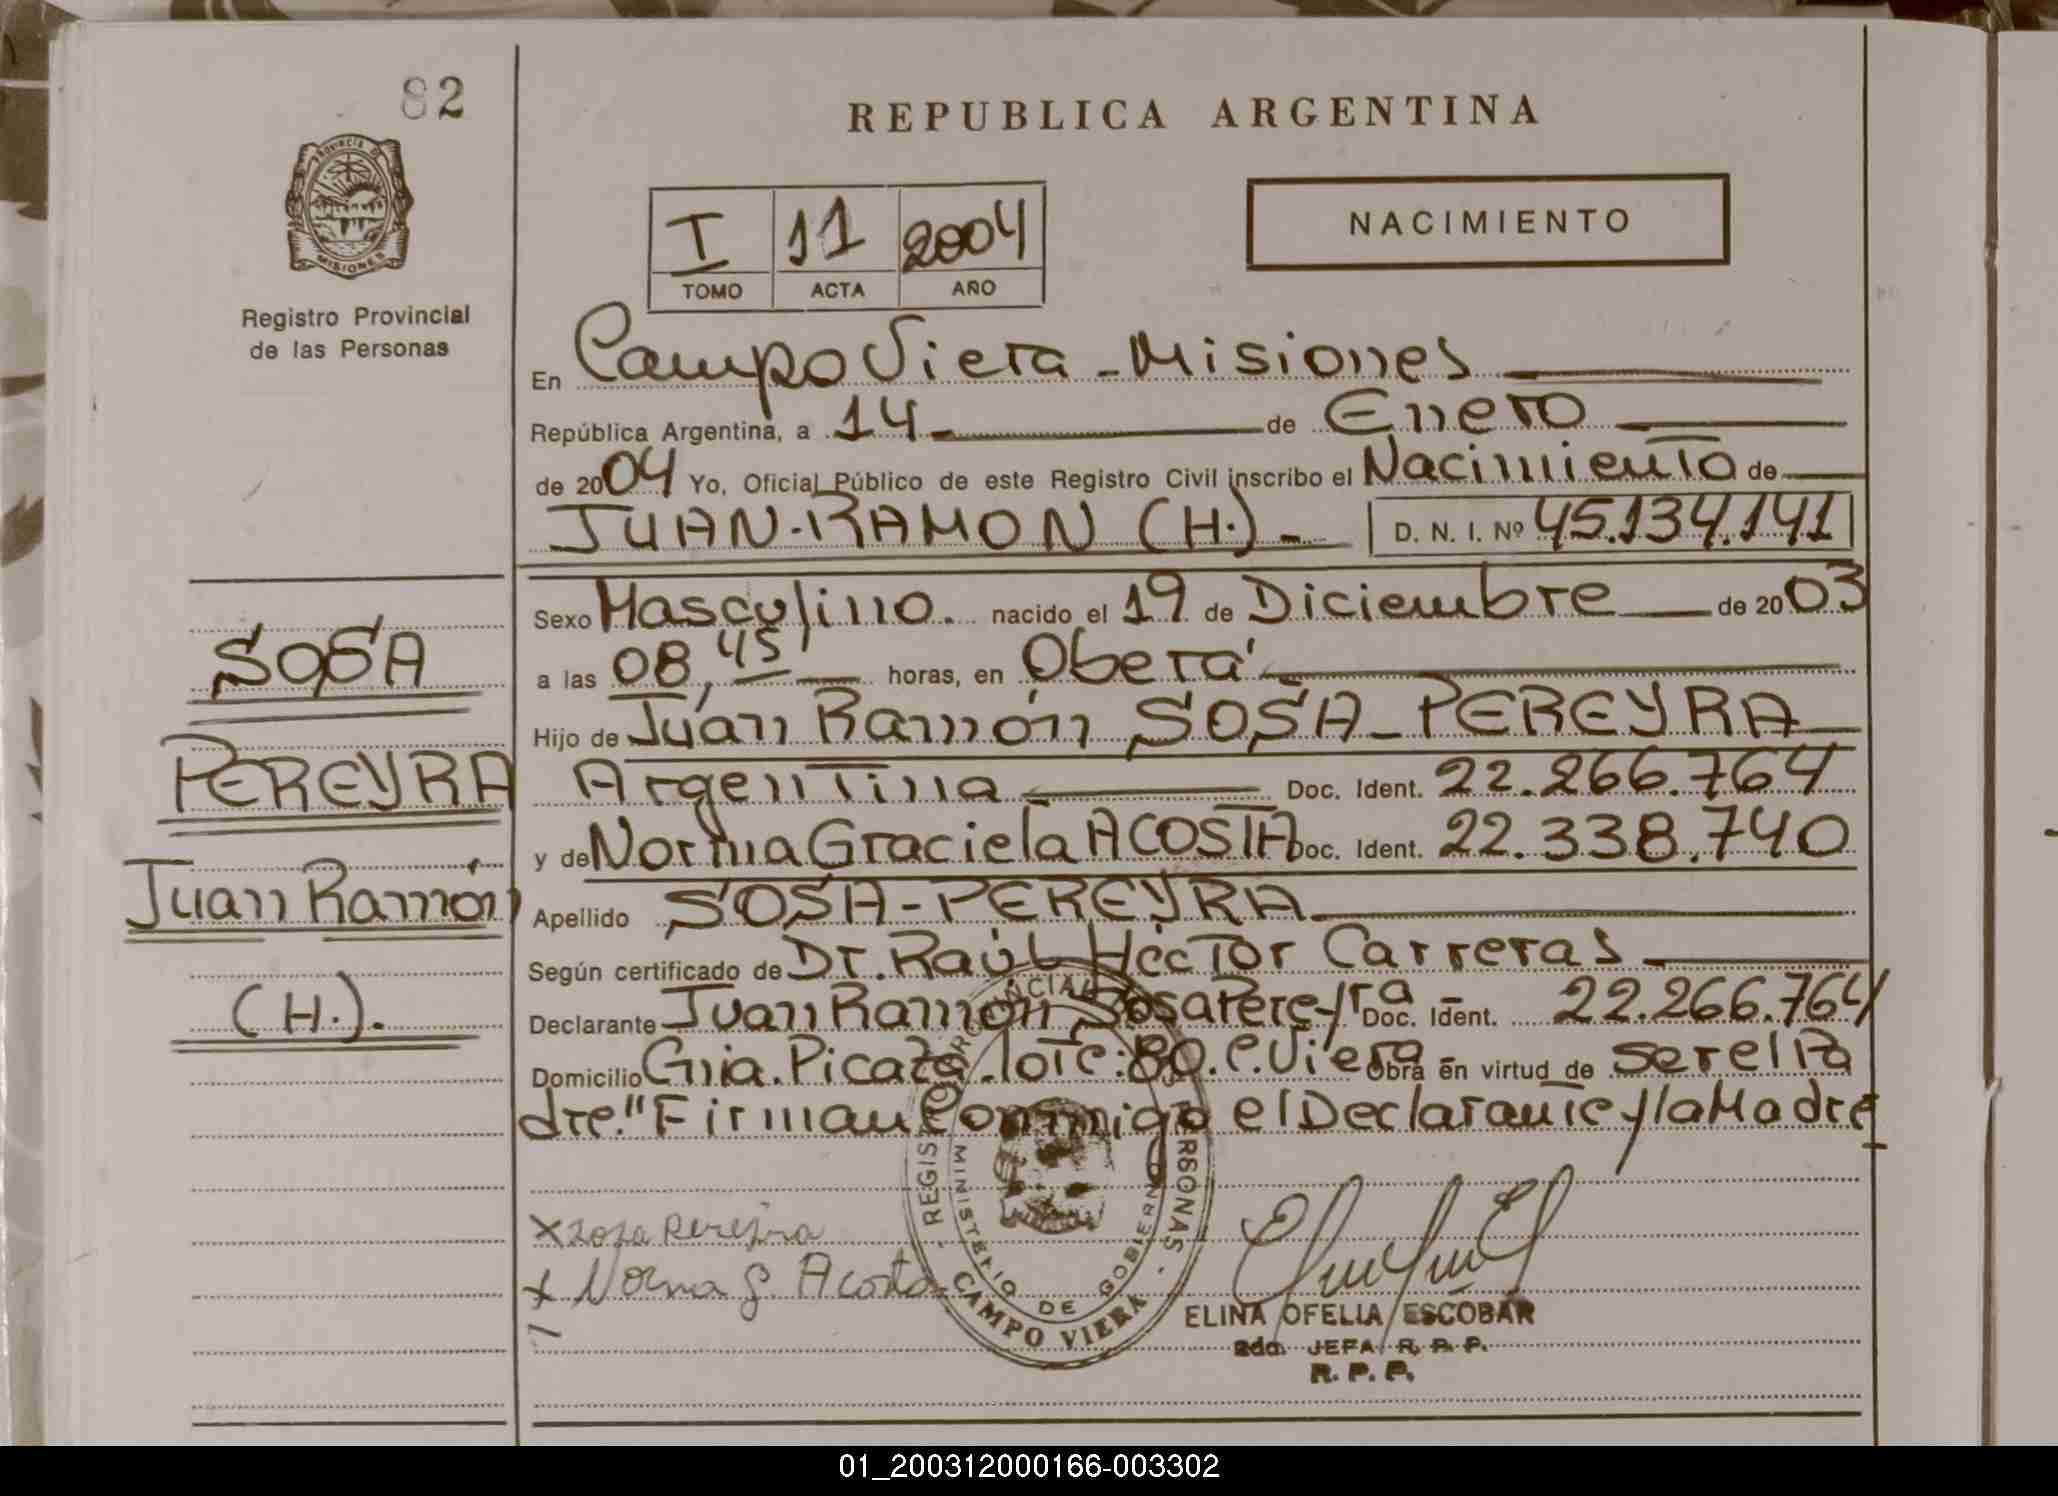 82
REPUBLICA ARGENTINA
PROVINCIA DE
MISIONES
Registro Provincial
de las Personas
I 11 2004
TOMO ACTA AÑO
NACIMIENTO
En Campo Viera - Misiones
República Argentina, a 14 de Enero
de 2004 Yo, Oficial Público de este Registro Civil inscribo el Nacimiento de
JUAN-RAMON (H.)- D. N. I. Nº 45.134.141
Sexo Masculino. nacido el 19 de Diciembre de 2003
a las 08,45' horas, en Oberá
Hijo de Juan Ramón SOSA-PEREYRA
Argentina Doc. Ident. 22.266.764
y de Norma Graciela ACOSTA Doc. Ident. 22.338.740
Apellido SOSA-PEREYRA
Según certificado de Dr. Raúl Héctor Carreras
Declarante Juan Ramón Sosa Pereyra Doc. Ident. 22.266.764
Domicilio Gnia. Picaza. lote: 80. C. Viera Obra en virtud de ser el Pa
dre." Firman Conmigo el Declarante y la Madre
SOSA
PEREYRA
Juan Ramón
(H.).
x Sosa Pereyra
x Norma G. Acosta
REGISTRO PROVINCIAL DE LAS PERSONAS
MINISTERIO DE GOBIERNO
CAMPO VIERA
ELINA OFELIA ESCOBAR
2da. JEFA R. P. P.
R. P. P.
01_200312000166-003302